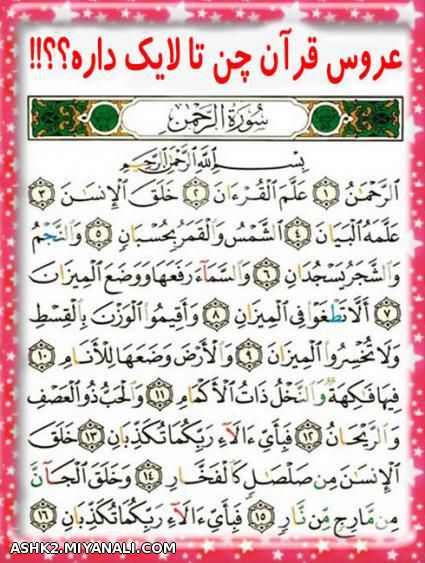 عروس قرآن چن تا لایک داره؟؟!!
سُورَةُ الرَّحْمَٰن
بِسْمِ اللَّهِ الرَّحْمَٰنِ الرَّحِيمِ
الرَّحْمَٰنُ ١ عَلَّمَ الْقُرْءَانَ ٢ خَلَقَ الْإِنسَٰنَ ٣
عَلَّمَهُ الْبَيَانَ ٤ الشَّمْسُ وَالْقَمَرُ بِحُسْبَانٍ ٥ وَالنَّجْمُ
وَالشَّجَرُ يَسْجُدَانِ ٦ وَالسَّمَآءَ رَفَعَهَا وَوَضَعَ الْمِيزَانَ
٧ أَلَّا تَطْغَوْا فِي الْمِيزَانِ ٨ وَأَقِيمُوا الْوَزْنَ بِالْقِسْطِ
وَلَا تُخْسِرُوا الْمِيزَانَ ٩ وَالْأَرْضَ وَضَعَهَا لِلْأَنَامِ ١٠
فِيهَا فَٰكِهَةٌ وَالنَّخْلُ ذَاتُ الْأَكْمَامِ ١١ وَالْحَبُّ ذُو الْعَصْفِ
وَالرَّيْحَانُ ١٢ فَبِأَيِّ ءَالَآءِ رَبِّكُمَا تُكَذِّبَانِ ١٣ خَلَقَ
الْإِنسَٰنَ مِن صَلْصَٰلٍ كَالْفَخَّارِ ١٤ وَخَلَقَ الْجَآنَّ
مِن مَّارِجٍ مِّن نَّارٍ ١٥ فَبِأَيِّ ءَالَآءِ رَبِّكُمَا تُكَذِّبَانِ ١٦
ASHK2.MIYANALI.COM